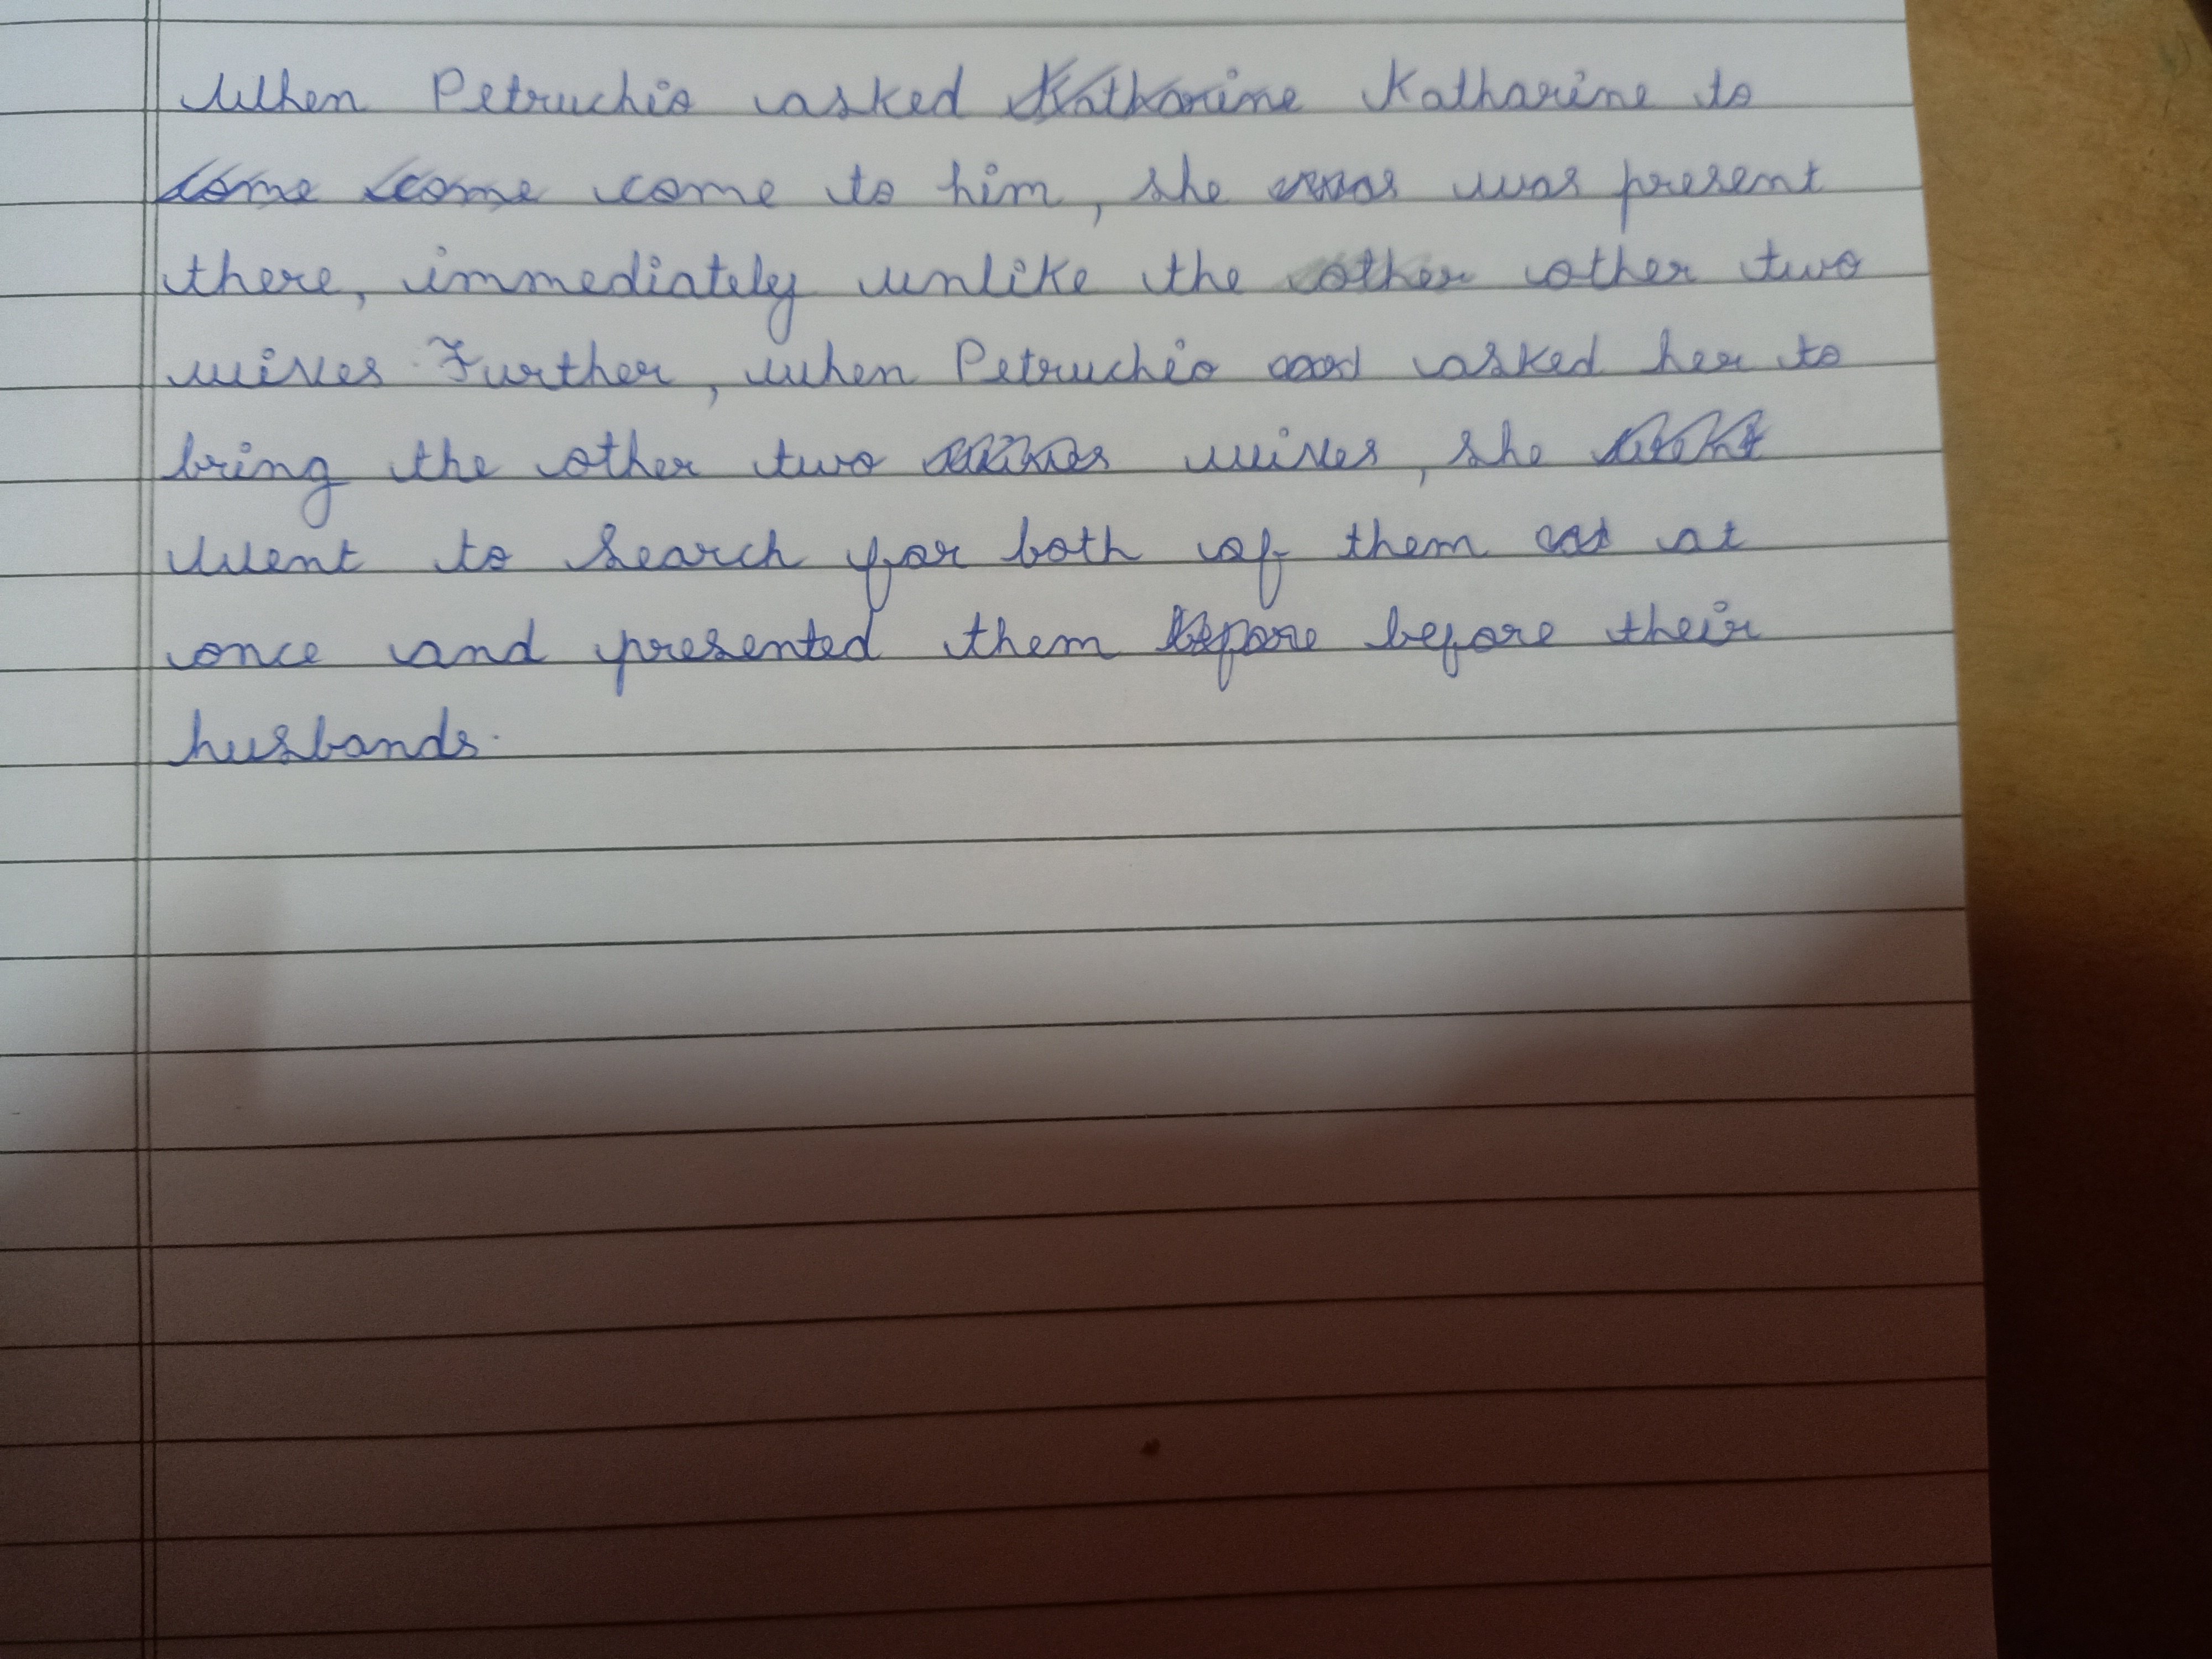 When Petruchio asked Katharine Katharine to
come come come to him, she was was present
there, immediately unlike the other other two
wives. Further, when Petruchio asked her to
bring the other two wives wives, she
went to search for both of them at at
once and presented them before before their
husbands.